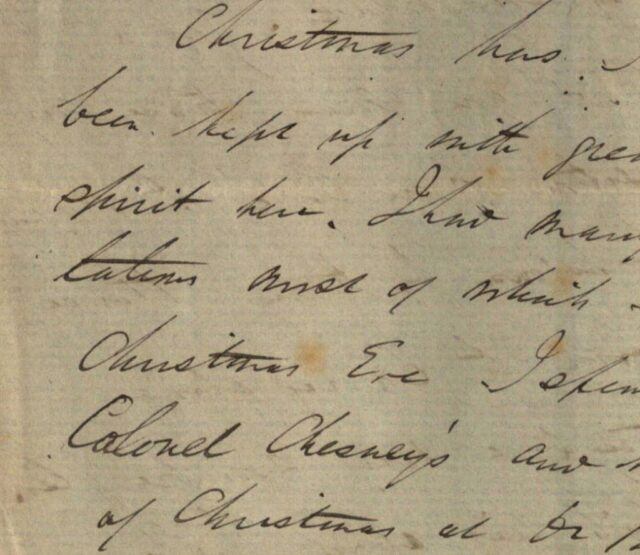 Christmas has
been kept up with
spirit here. I had many
tations most of which
Christmas Eve I
Colonel Chesney's and
of Christmas at Dr